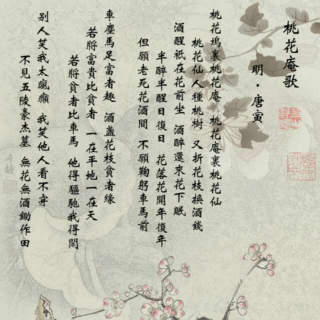 桃花庵歌
明·唐寅
桃花塢裏桃花庵 桃花庵裏桃花仙
桃花仙人種桃樹 又折花枝換酒錢
酒醒衹在花前坐 酒醉還來花下眠
半醉半醒日復日 花落花開年復年
但願老死花酒間 不願鞠躬車馬前
車塵馬足富者趣 酒盞花枝貧者緣
若將富貴比貧者 一在平地一在天
若將貧者比車馬 他得驅馳我得閑
別人笑我太瘋癲 我笑他人看不穿
不見五陵豪杰墓 無花無酒鋤作田